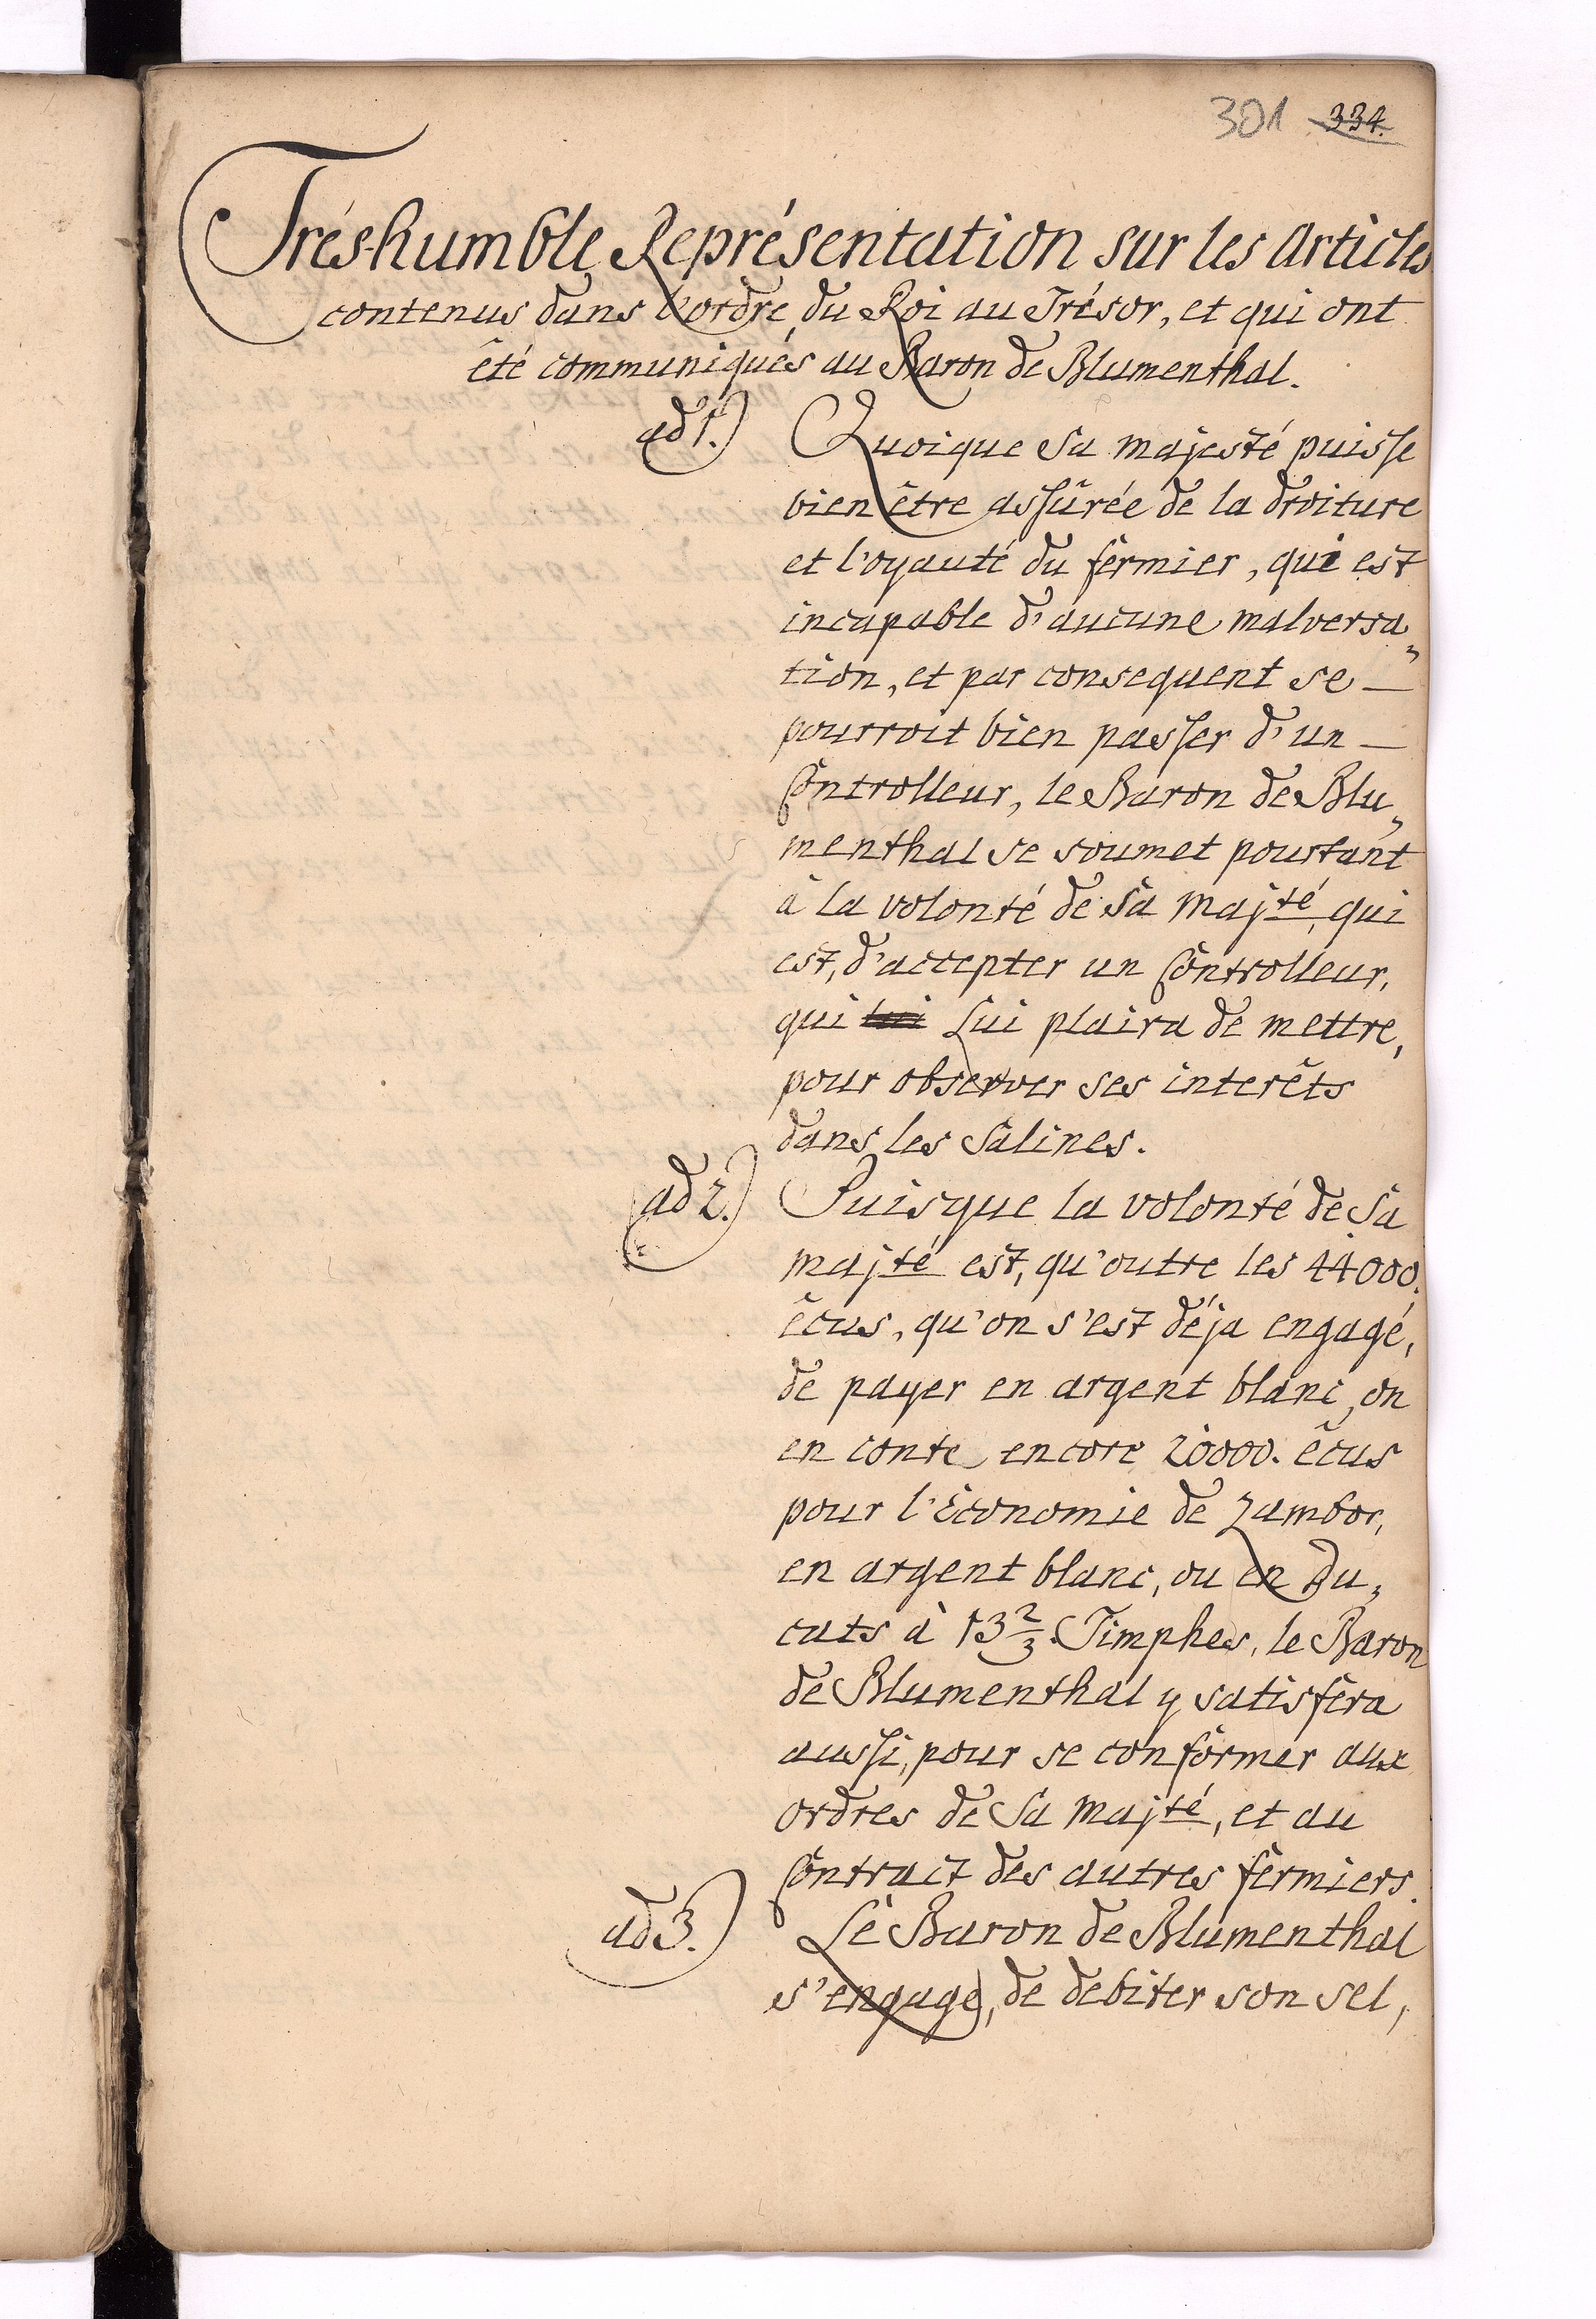 301 334.
Trés-humble Représentation sur les Articles
contenus dans l'ordre du Roi au Trésor, et qui ont
êté communiqués au Baron de Blumenthal.
ad 1.) Quoique Sa Majesté puisse
bien être assûrée de la droiture
et l'oyauté du fermier, qui est
incapable d'aucune malversa„
tion, et par consequent se —
pourroit bien passer d'un —
Controlleur, le Baron de Blu„
menthal se soumet pourtant
à la volonté de Sa Majté, qui
est, d'accepter un Controlleur,
qui lui Lui plaira de mettre,
pour observer ses interêts
dans les Salines.
ad 2.) Puisque la volonté de Sa
Majté est, qu'outre les 44000.
êcus, qu'on s'est déja engagé,
de payer en argent blanc, on
en conte encore 20000. êcus
pour l'Economie de Zambor,
en argent blanc, ou en Du„
cats à 13 2/3. Timphes, le Baron
de Blumenthal y satisfera
aussi, pour se conformer aux
ordres de Sa Majté, et au
Contract des autres fermiers.
ad 3.) Le Baron de Blumenthal
s'engage, de debiter son sel,